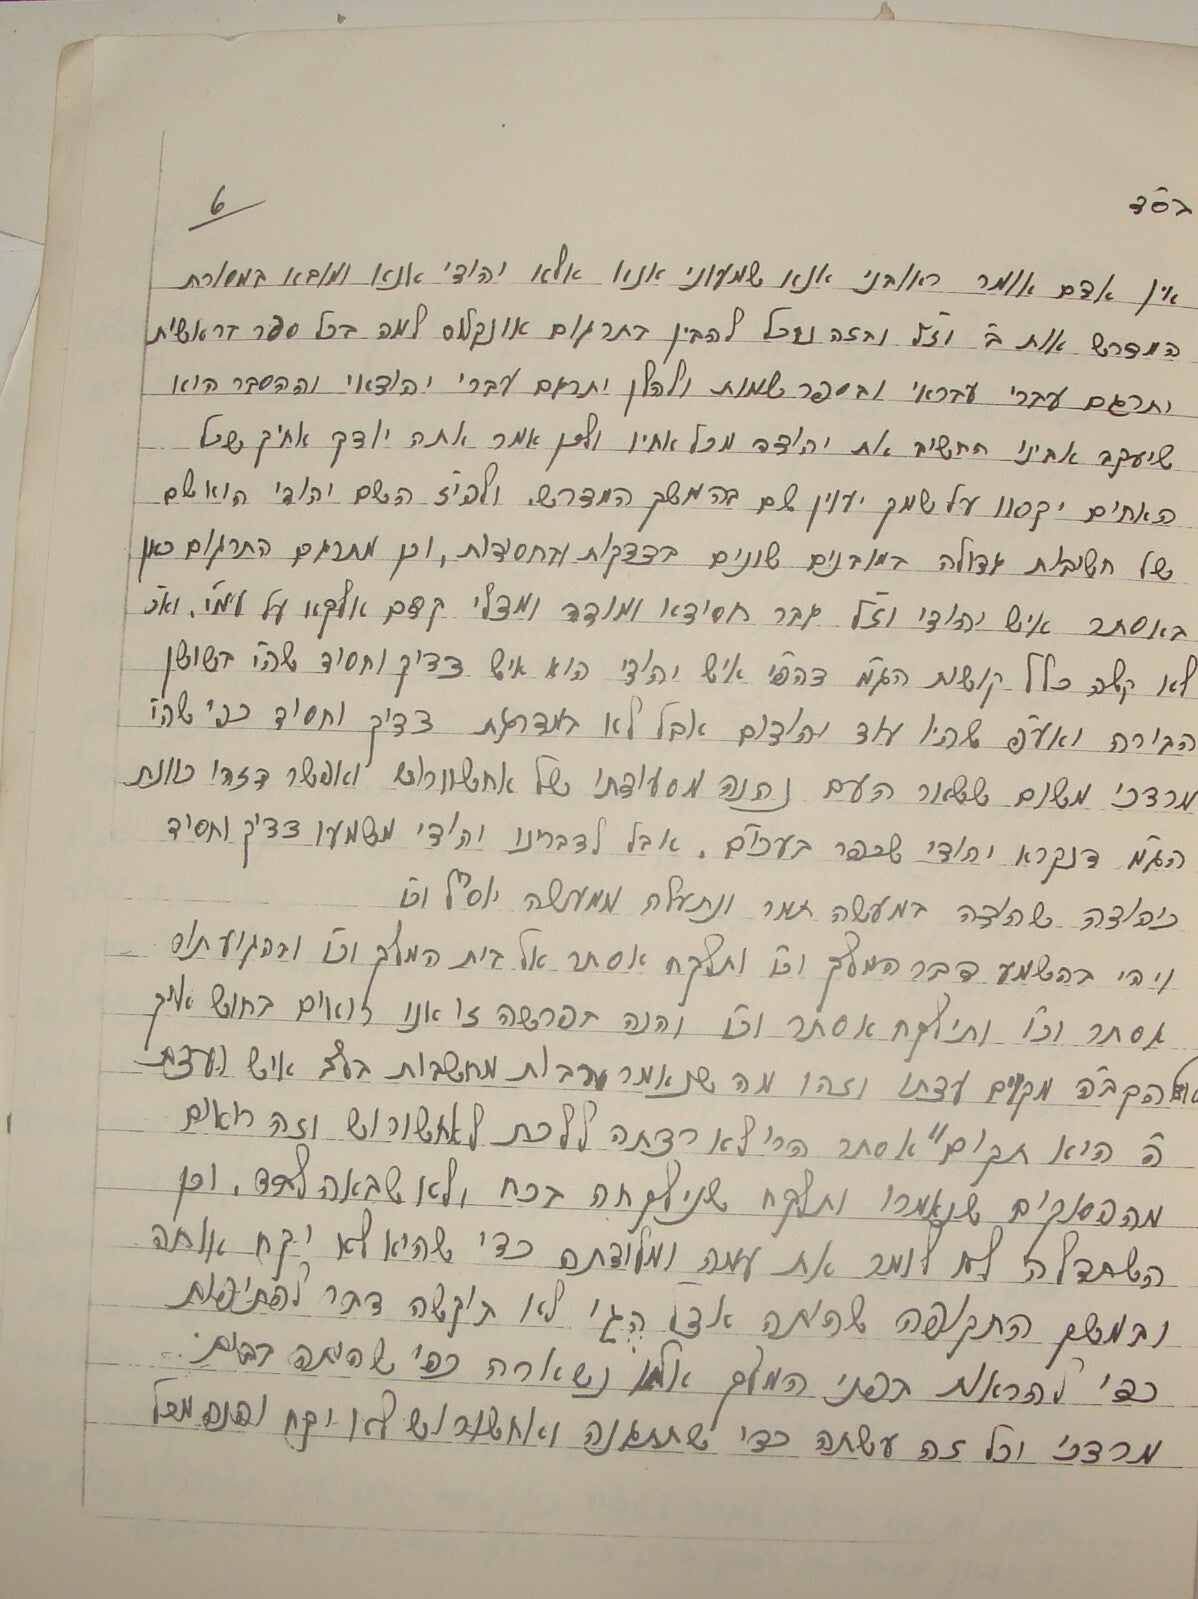 בס"ד
6
אין אדם אומר ראובני אנא שמעוני אנא אלא יהודי אנא ומובא במסורת
המדרש אות ב' וז"ל ובזה נוכל להבין בתרגום אונקלוס למה בכל ספר בראשית
יתרגם עברי עבראי ובספר שמות ולהלן יתרגם עברי יהודאי וההסבר הוא
שיעקב אבינו החשיב את יהודה מכל אחיו ולכן אמר אתה יודוך אחיך שכל
האחים יקראו על שמך יעוין שם בהמשך המדרש. ולפי"ז השם יהודי הוא שם
של חשיבות גדולה במובנים שונים בצדקות ובחסידות, וכן מתרגם התרגום כאן
באסתר איש יהודי וז"ל גבר חסידא ומודה ומצלי קדם אלקא על עמי'. וא"כ
לא קשה כלל קושית הגמ' דהפי' איש יהודי הוא איש צדיק וחסיד שהי' בשושן
הבירה ואע"פ שהיו עוד יהודים אבל לא במדרגת צדיק וחסיד כפי שהי'
מרדכי משום ששאר העם נהנה מסעודתו של אחשורוש ואפשר דזהו כוונת
הגמ' דנקרא יהודי שכפר בעכו"ם. אבל לדברינו יהודי משמעו צדיק וחסיד
כיהודה שהודה במעשה תמר ונתעלה ממעשה וכו'
ויהי בהשמע דבר המלך וכו' ותלקח אסתר אל בית המלך וכו' ובהגיע תור
אסתר וכו' ותילקח אסתר וכו' והנה בפרשה זו אנו רואים בחוש איך
הקב"ה מקים עצתו וזהו מה שנאמר רבות מחשבות בלב איש ועצת
ה' היא תקום" אסתר הרי לא רצתה ללכת לאחשורוש וזה רואים
מהפסוקים שנאמרו ותלקח שנילקחה בכח ולא שבאה לבד. וכן
השתדלה לא לומר את עמה ומולדתה כדי שהיא לא יקח אותה
ובמשך התקופה שהיתה אצל הגי לא ביקשה דבר
כדי להראות בפני המלך אלא נשארה כפי שהיתה בבית:
מרדכי וכל זה עשתה כדי שתתגנה ואחשורוש לא יקח